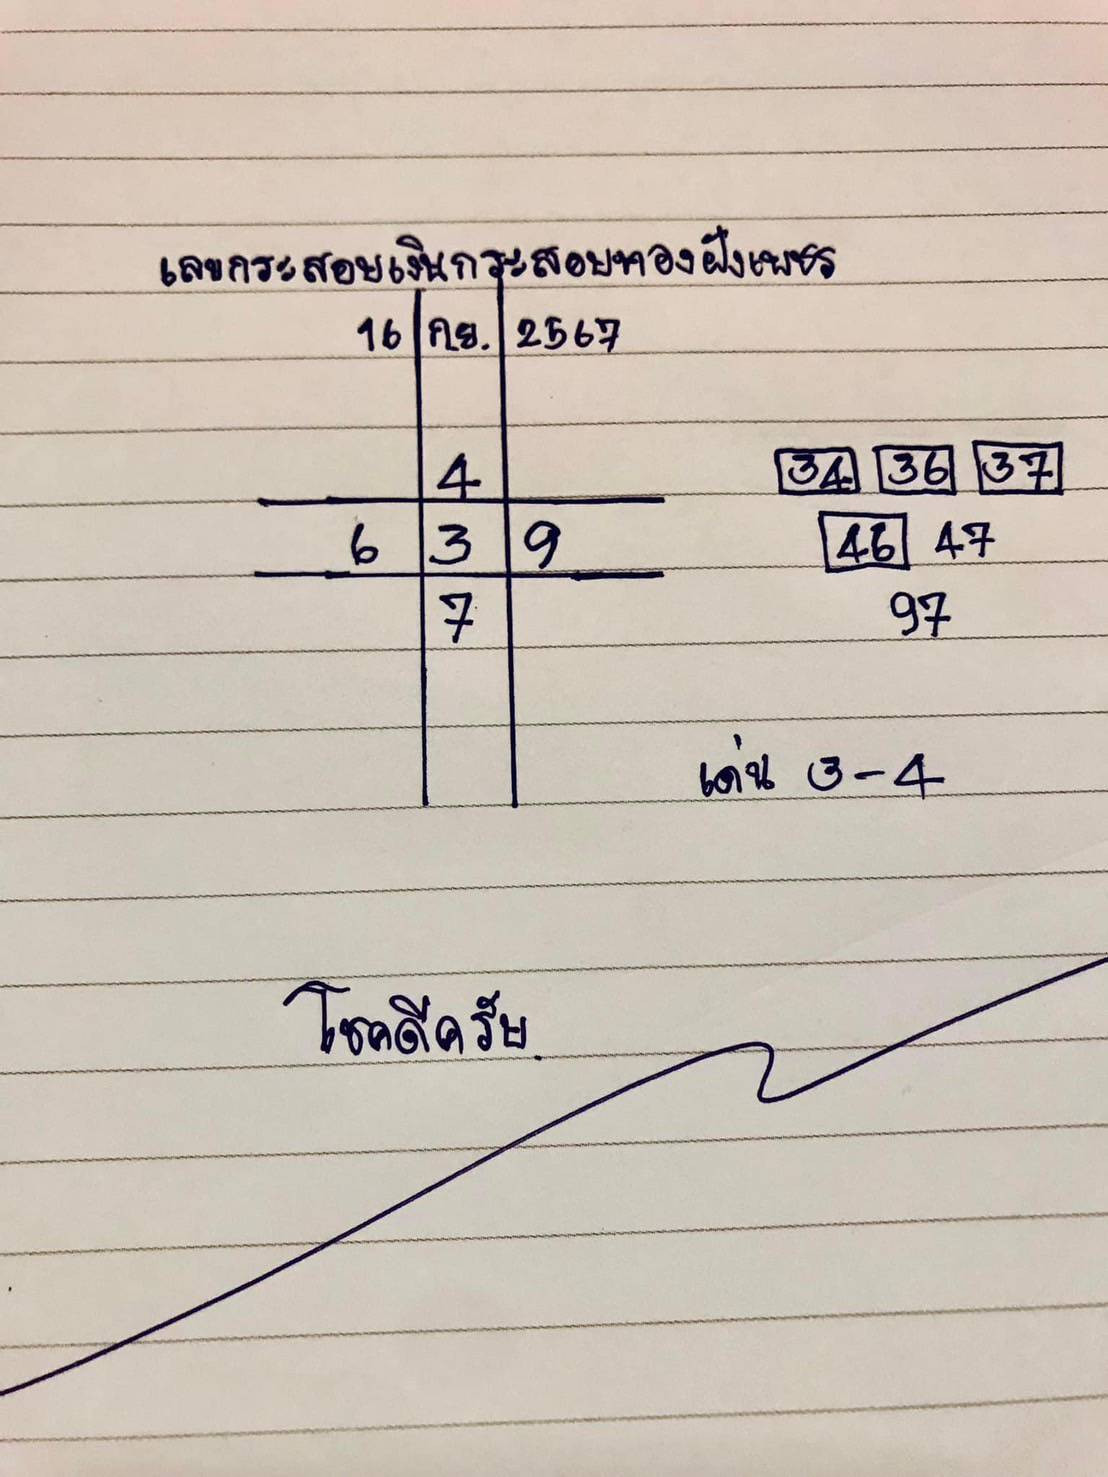 เลขกระสอบเงินกระสอบทองฝังเพชร
16 กย. 2567
4
6 3 9
7
34 36 37
46 47
97
เด่น 3-4
โชคดีครับ